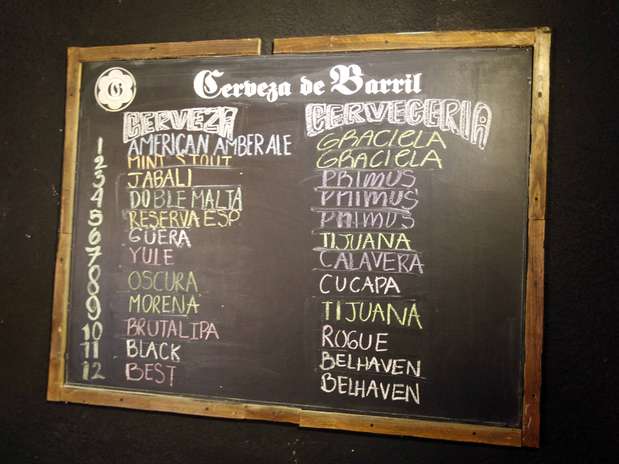 G Cerveza de Barril
CERVEZA CERVECERIA
1 AMERICAN AMBER ALE GRACIELA
2 MINT STOUT GRACIELA
3 JABALI PRIMUS
4 DOBLE MALTA PRIMUS
5 RESERVA ESP PRIMUS
6 GÜERA TIJUANA
7 YULE CALAVERA
8 OSCURA CUCAPA
9 MORENA TIJUANA
10 BRUTAL IPA ROGUE
11 BLACK BELHAVEN
12 BEST BELHAVEN